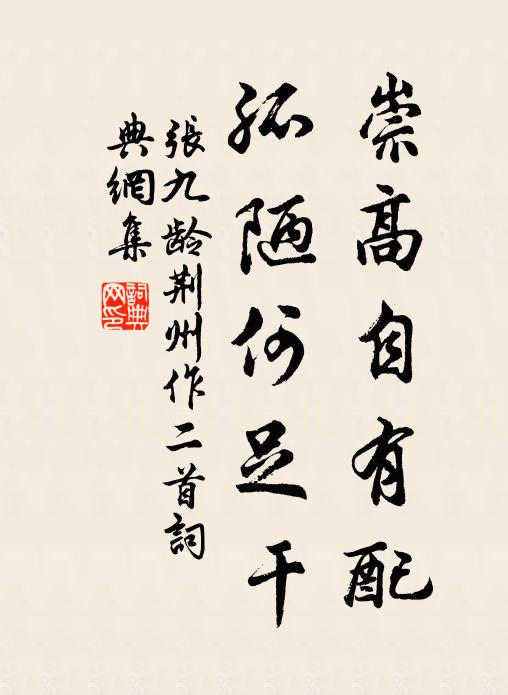 崇高自有配
孤陋何足干
張九龄荆州作二首詞
典網集
詞典
网印